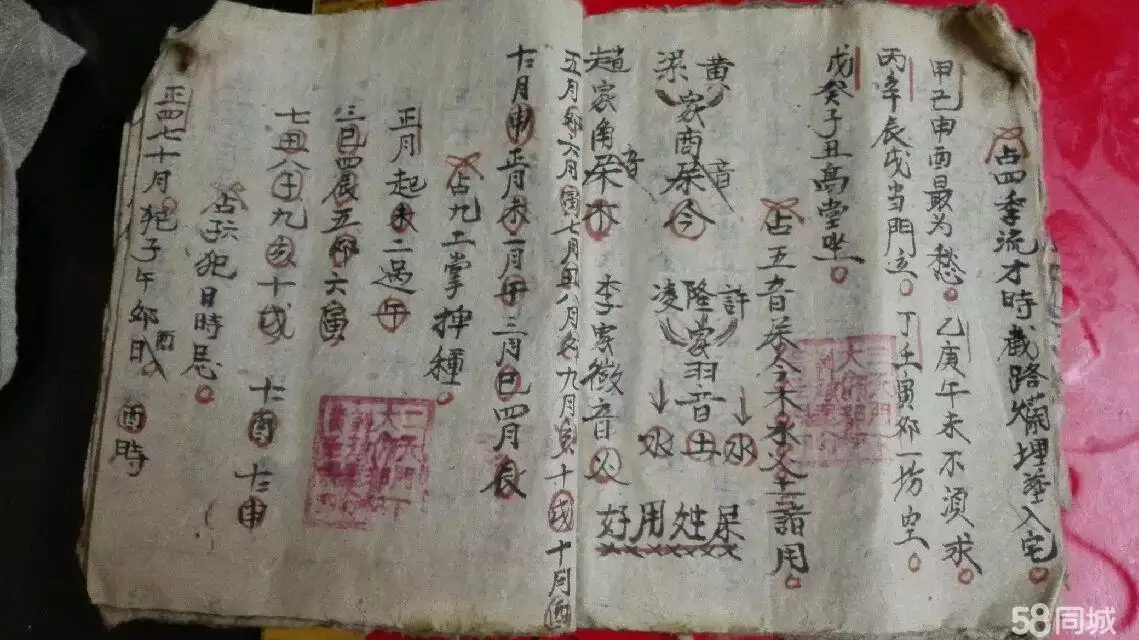 占四季流才時截路爛埋葬入宅
甲己申酉最为愁。乙庚午未不須求。
丙辛辰戌当門立。丁壬寅卯一坊空。
戊癸子丑高堂坐。
占五音杀金木水火土諸用。
黄 許
家商杀音今 隆家羽音土水
梁 凌 水
趙家角杀音木 李家徵音火
好用姓呆
五月卯六月寅七月丑八月子九月亥十月戌十月酉
十二月申正月未一月午二月巳四月辰
占九工掌押種。
正月起未二過午
三巳四辰五卯六寅
七丑八子九亥十戌 十酉 十二申
占 犯日時忌。
正四七十月。犯子午卯酉日 酉時
58同城